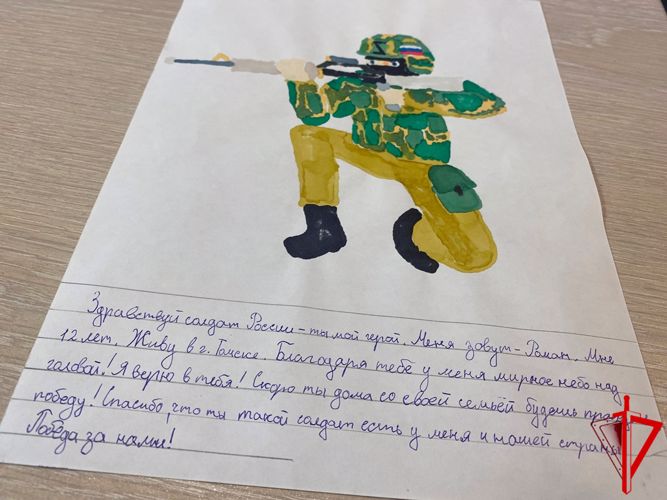 Z
Здравствуй солдат России - ты мой герой. Меня зовут - Роман. Мне
12 лет. Живу в г. Томске. Благодаря тебе у меня мирное небо над
головой! Я верю в тебя! Скоро ты дома со своей семьёй будешь
победу! Спасибо, что ты такой солдат есть у меня и нашей страны
Победа за нами!